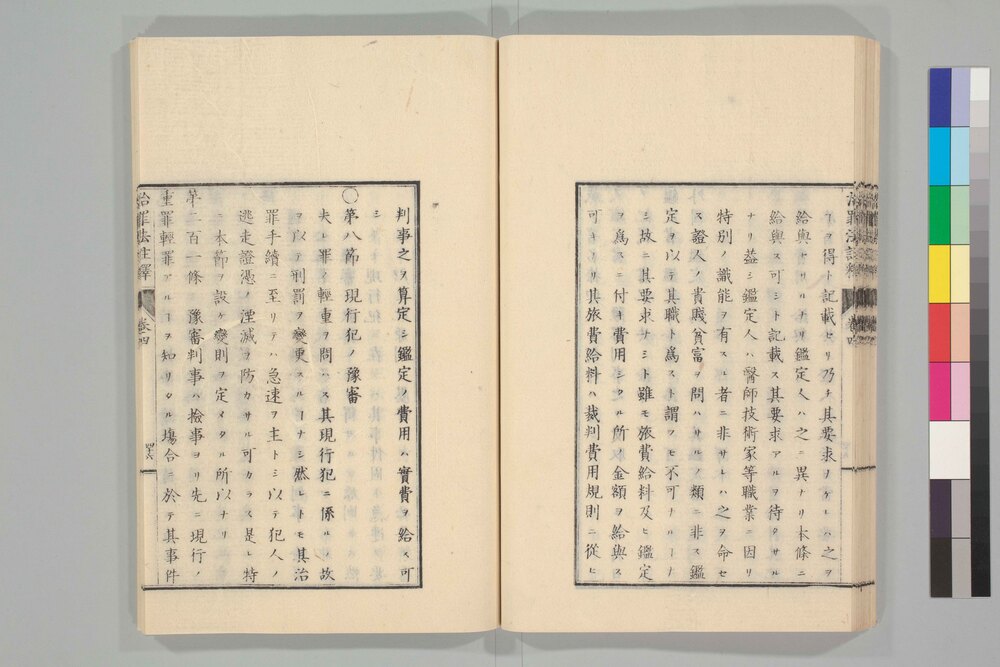 ヲ得ト記載セリ乃チ其要求ナケレハ之ヲ
給與セサルナリ鑑定人ハ之ニ異ナリ本條ニ
給與ス可シト記載ス其要求アルヲ待タサル
ナリ蓋シ鑑定人ハ醫師技術家等職業ニ因リ
特別ノ識能ヲ有スル者ニ非サレハ之ヲ命セ
ス證人ノ貴賤貧富ヲ問ハサルノ類ニ非ス鑑
定ヲ以テ其職ト爲スト謂フモ不可ナルーナ
シ故ニ其要求ナシト雖モ旅費給料及ヒ鑑定
ヲ爲スニ付キ費用シタル所ノ金額ヲ給與ス
可キナリ其旅費給料ハ裁判費用規則ニ從ヒ
治罪法註釋
卷四
判事之ヲ算定シ鑑定ノ費用ハ實費ヲ給ス可
シ
〇第八節 現行犯ノ豫審
夫レ罪ノ輕重ヲ問ハス其現行犯ニ係ルノ故
ヲ以テ刑罰ヲ變更スルーナシ然レトモ其治
罪手續ニ至リテハ急速ヲ主トシ以テ犯人ノ
逃走證憑ノ湮滅ヲ防カサル可カラス是レ特
ニ本節ヲ設ケ變則ヲ定メタル所以ナリ
第二百一條 豫審判事ハ檢事ヨリ先ニ現行ノ
重罪輕罪アルーヲ知リタル塲合ニ於テ其事件
治罪法註釋
卷四